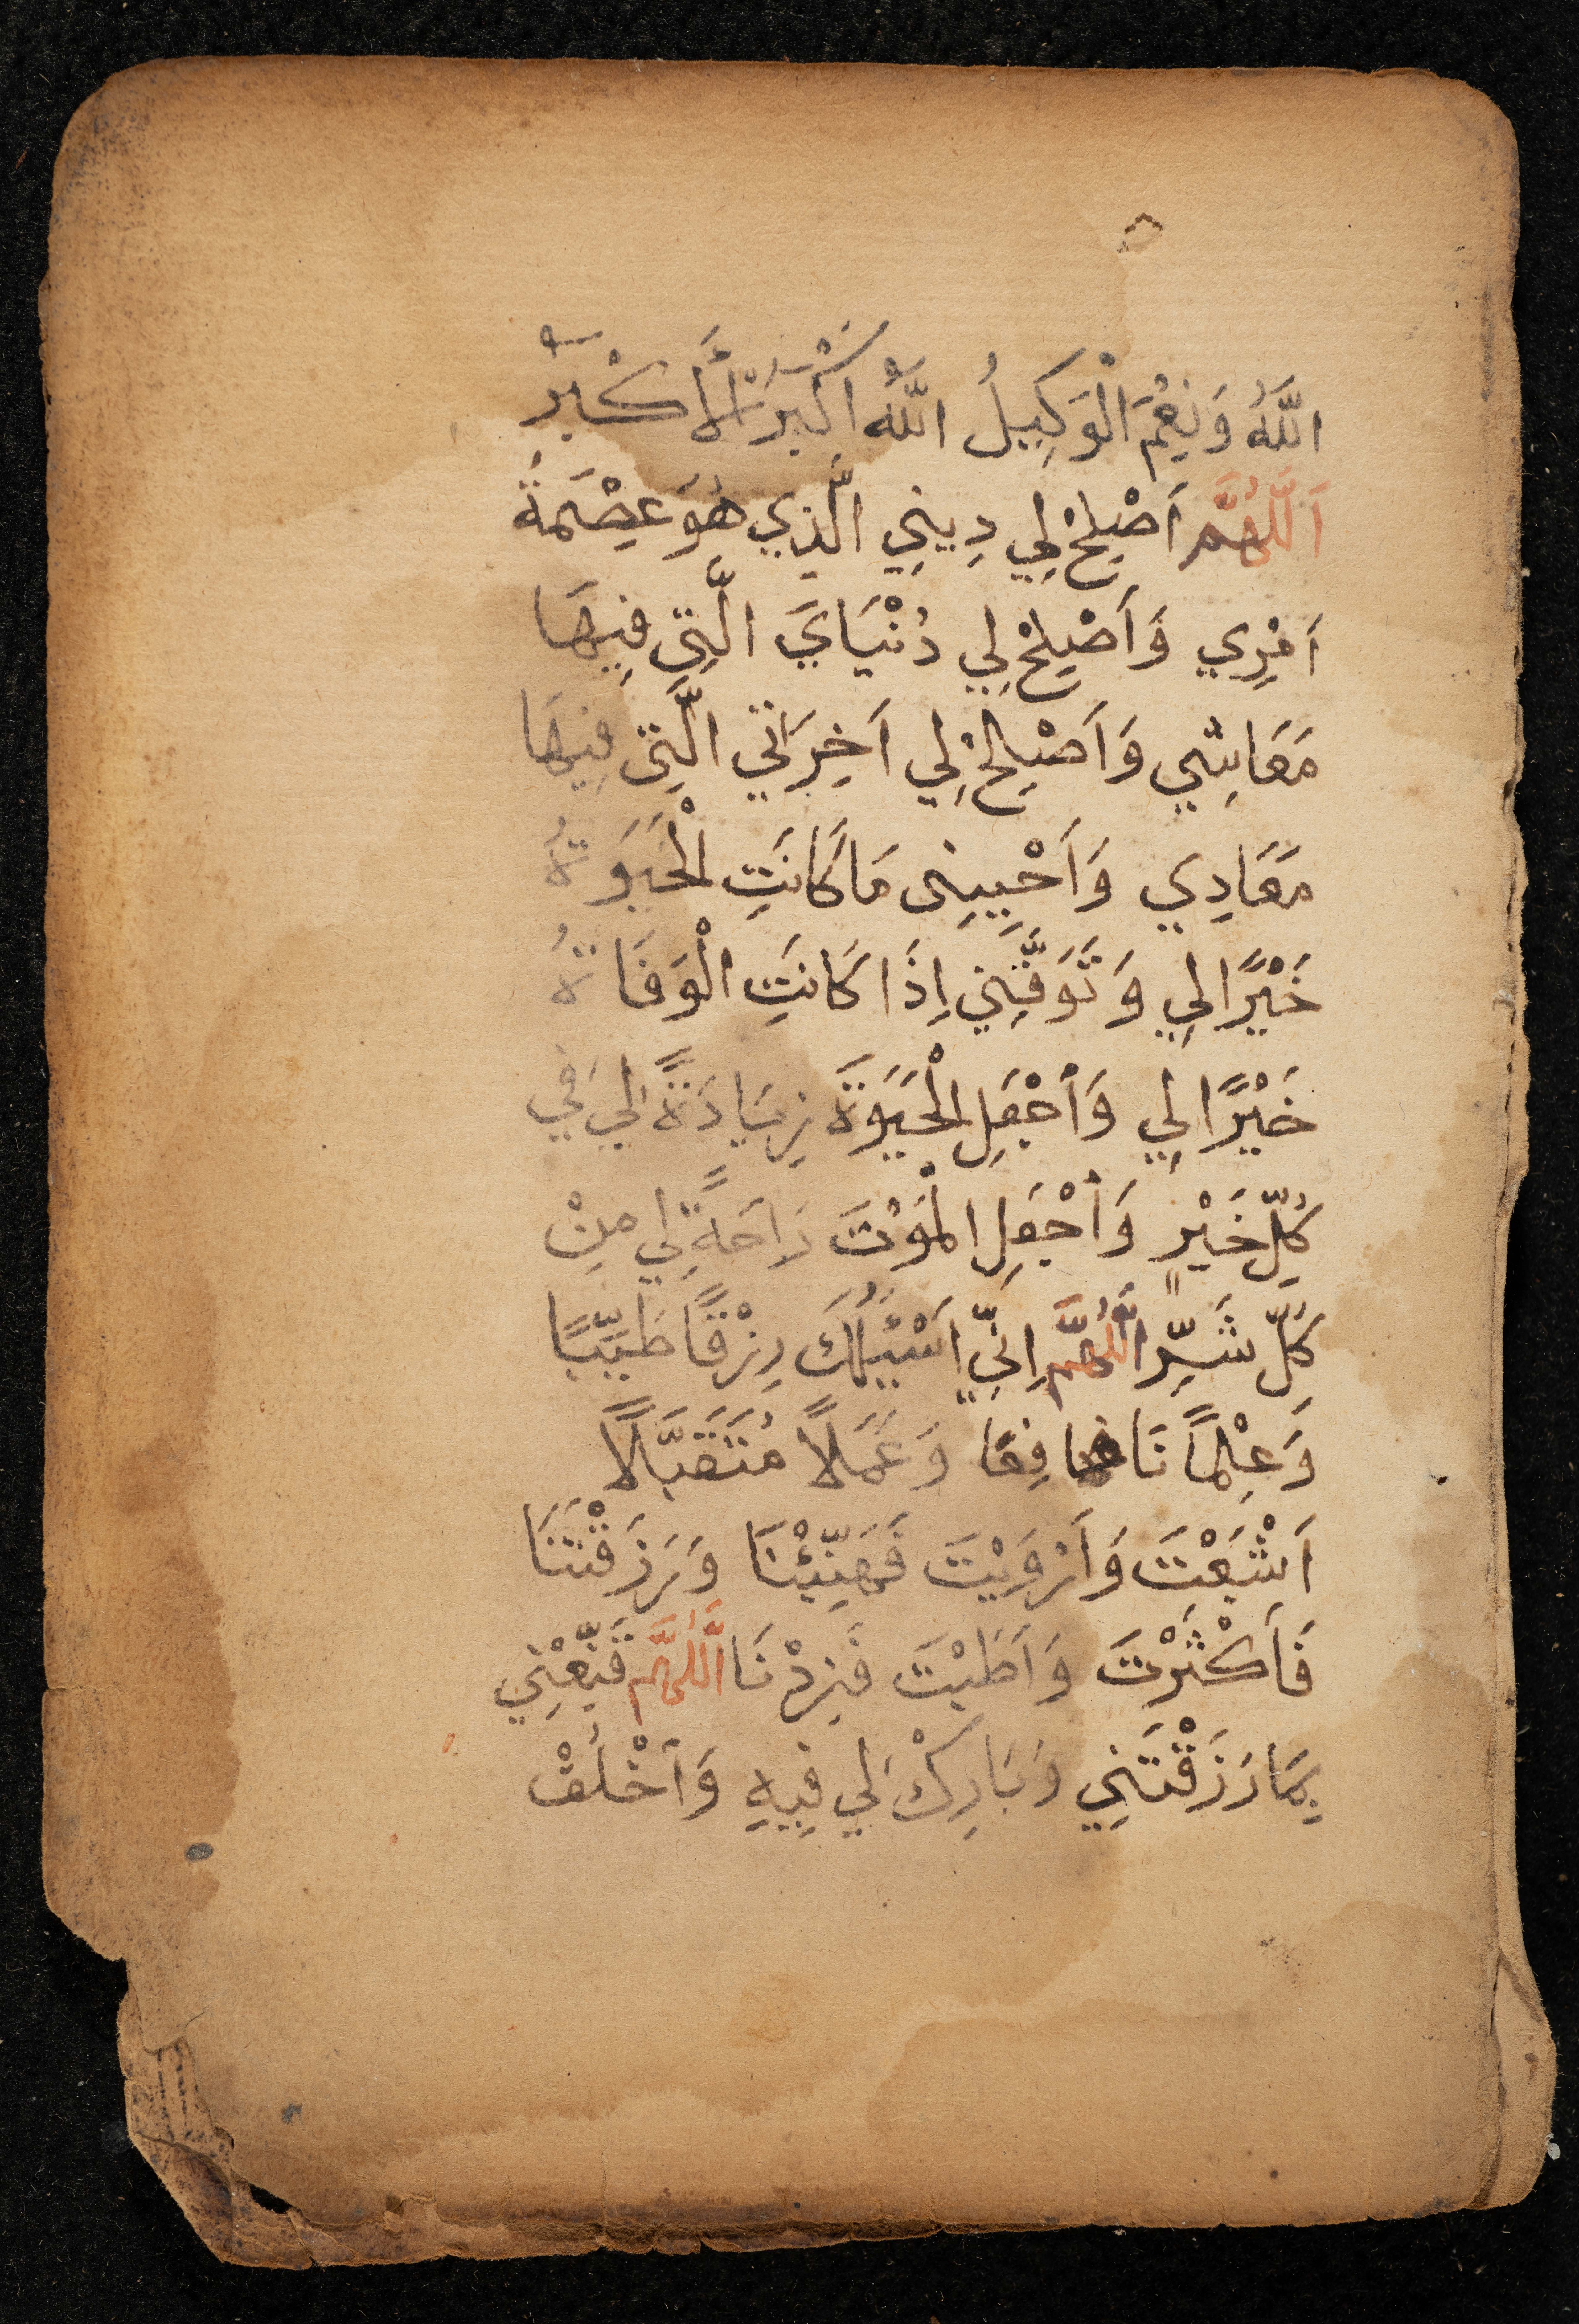 اللَّهُ وَنِعْمَ الْوَكِيلُ اللَّهُ اَكْبَرُ الْأَكْبَرُ
اَللَّهُمَّ اَصْلِحْ لِي دِينِي الَّذِي هُوَ عِصْمَةُ
اَمْرِي وَاَصْلِحْ لِي دُنْيَايَ الَّتِي فِيهَا
مَعَاشِي وَاَصْلِحْ لِي اَخِرَاتِي الَّتِي فِيهَا
مَعَادِي وَاَحْيِينِى مَا كَانَتِ الْحَيَوَةُ
خَيْرًا لِي وَتَوَفَّنِي اِذَا كَانَتِ الْوَفَاةُ
خَيْرًا لِي وَاجْعَلِ الْحَيَوَةَ زِيَادَةً لِي فِي
كُلِّ خَيْرٍ وَاجْعَلِ الْمَوْتَ رَاحَةً لِي مِنْ
كُلِّ شَرٍّ اللَّهُمَّ اِنِّي اَسْئَلُكَ رِزْقًا طَيِّبًا
وَعِلْمًا نَافِعًا وَعَمَلًا مُتَقَبَّلًا
اَشْبَعْتَ وَاَرْوَيْتَ فَهَنِّئْنَا وَرَزَقْتَنَا
فَاَكْثَرْتَ وَاَطَبْتَ فَزِدْنَا اَللَّهُمَّ قَنِّعْنِي
بِمَا رَزَقْتَنِي وَبَارِكْ لِي فِيهِ وَاخْلُفْ